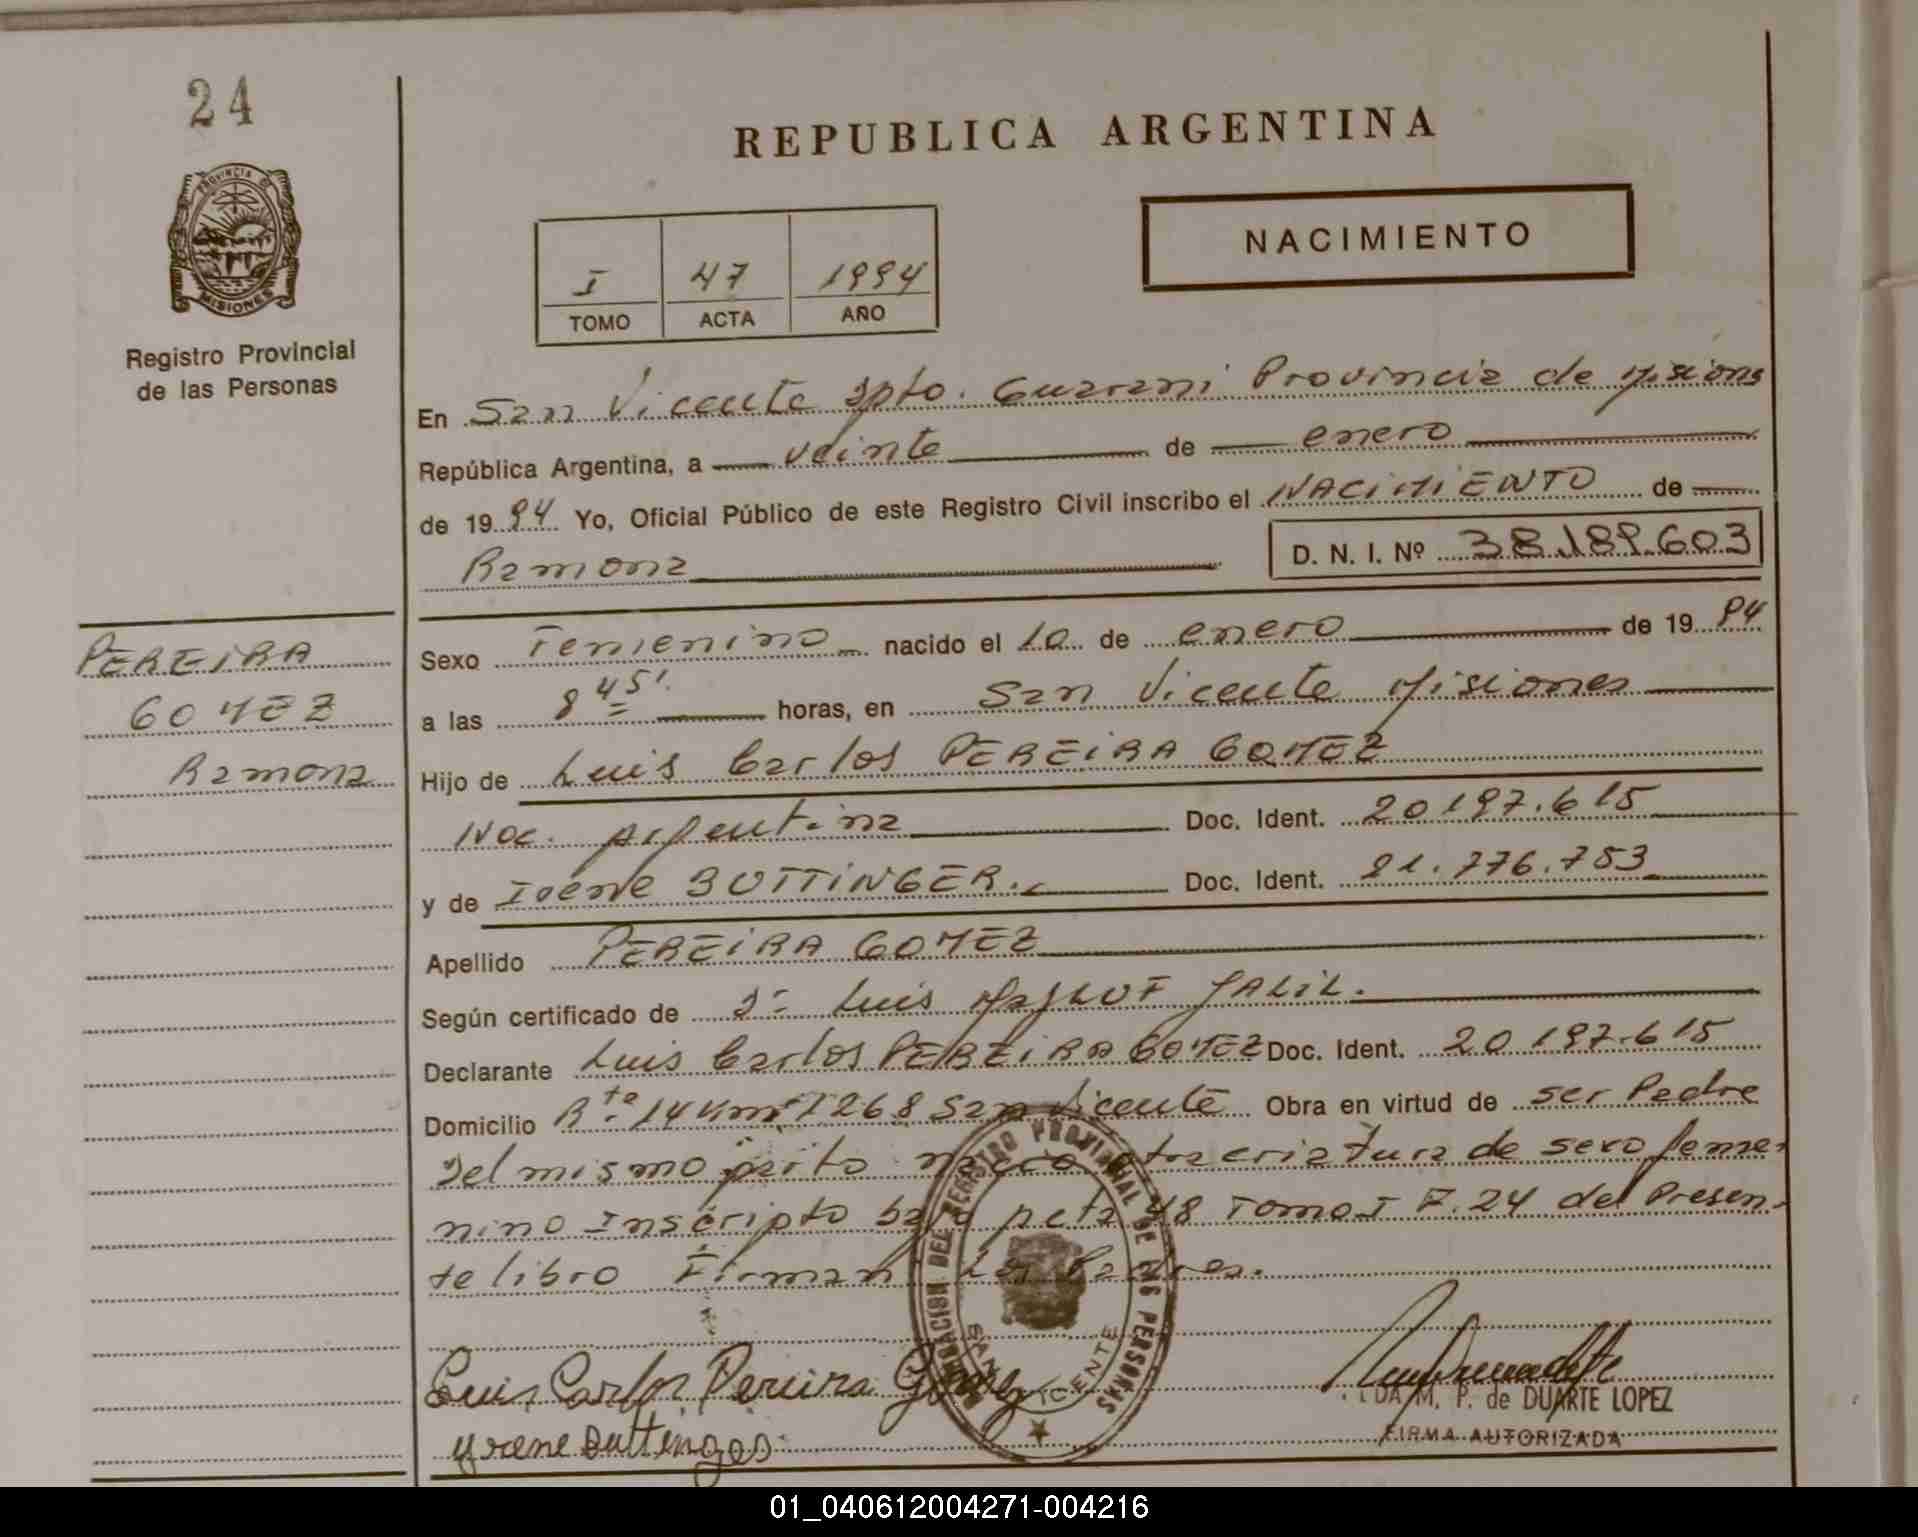 24
REPUBLICA ARGENTINA
PROVINCIA DE
MISIONES
Registro Provincial
de las Personas
NACIMIENTO
I 47 1994
TOMO ACTA AÑO
En San Vicente Dpto. Guarani Provincia de Misiones
República Argentina, a veinte de enero
de 1994 Yo, Oficial Público de este Registro Civil inscribo el NACIMIENTO de
Ramona D. N. I. Nº 38.189.603
PEREIRA
GOMEZ
Ramona
Sexo Femenino nacido el 10 de enero de 1994
a las 8 45' horas, en San Vicente Misiones
Hijo de Luis Carlos PEREIRA GOMEZ
Nac. Argentina Doc. Ident. 20 197.615
y de Irene BUTTINGER. Doc. Ident. 21.776.753
Apellido PEREIRA GOMEZ
Según certificado de Dr Luis JALIL.
Declarante Luis Carlos PEREIRA GOMEZ Doc. Ident. 20 197.615
Domicilio Rta 14 Km 1268 San Vicente Obra en virtud de ser Padre
Del mismo parto nacio otra criatura de sexo feme-
nino Inscripto bajo Acta 48 Tomo I F. 24 del Presen-
te libro Firman Los Padres.
REGISTRO PROVINCIAL DE LAS PERSONAS
SAN VICENTE
Luis Carlos Pereira Gomez
M. P. de DUARTE LOPEZ
FIRMA AUTORIZADA
01_040612004271-004216